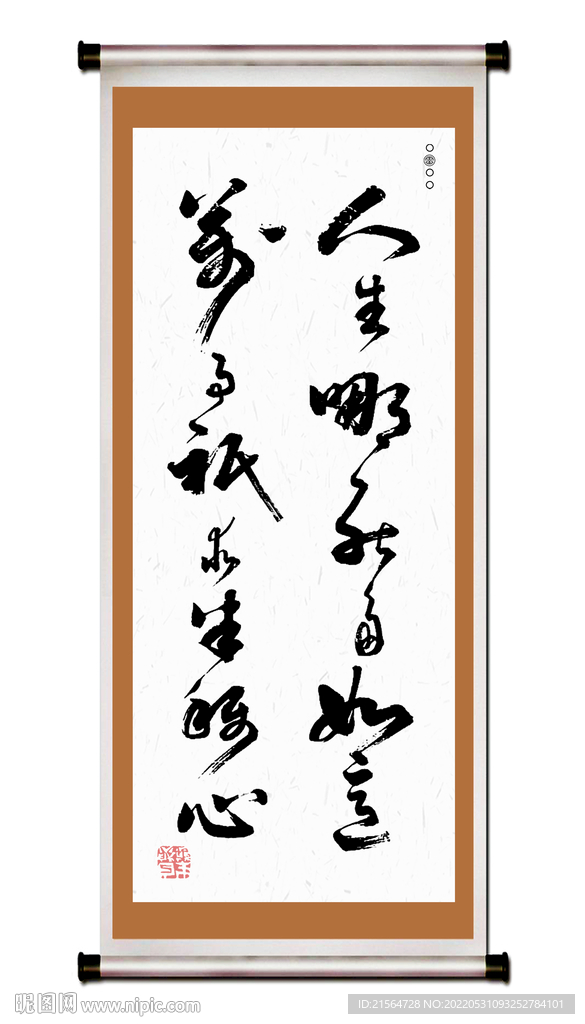 人生哪能多如意
萬事祇求半稱心
昵图网 www.nipic.com
ID:21564728 NO:20220531093252784101